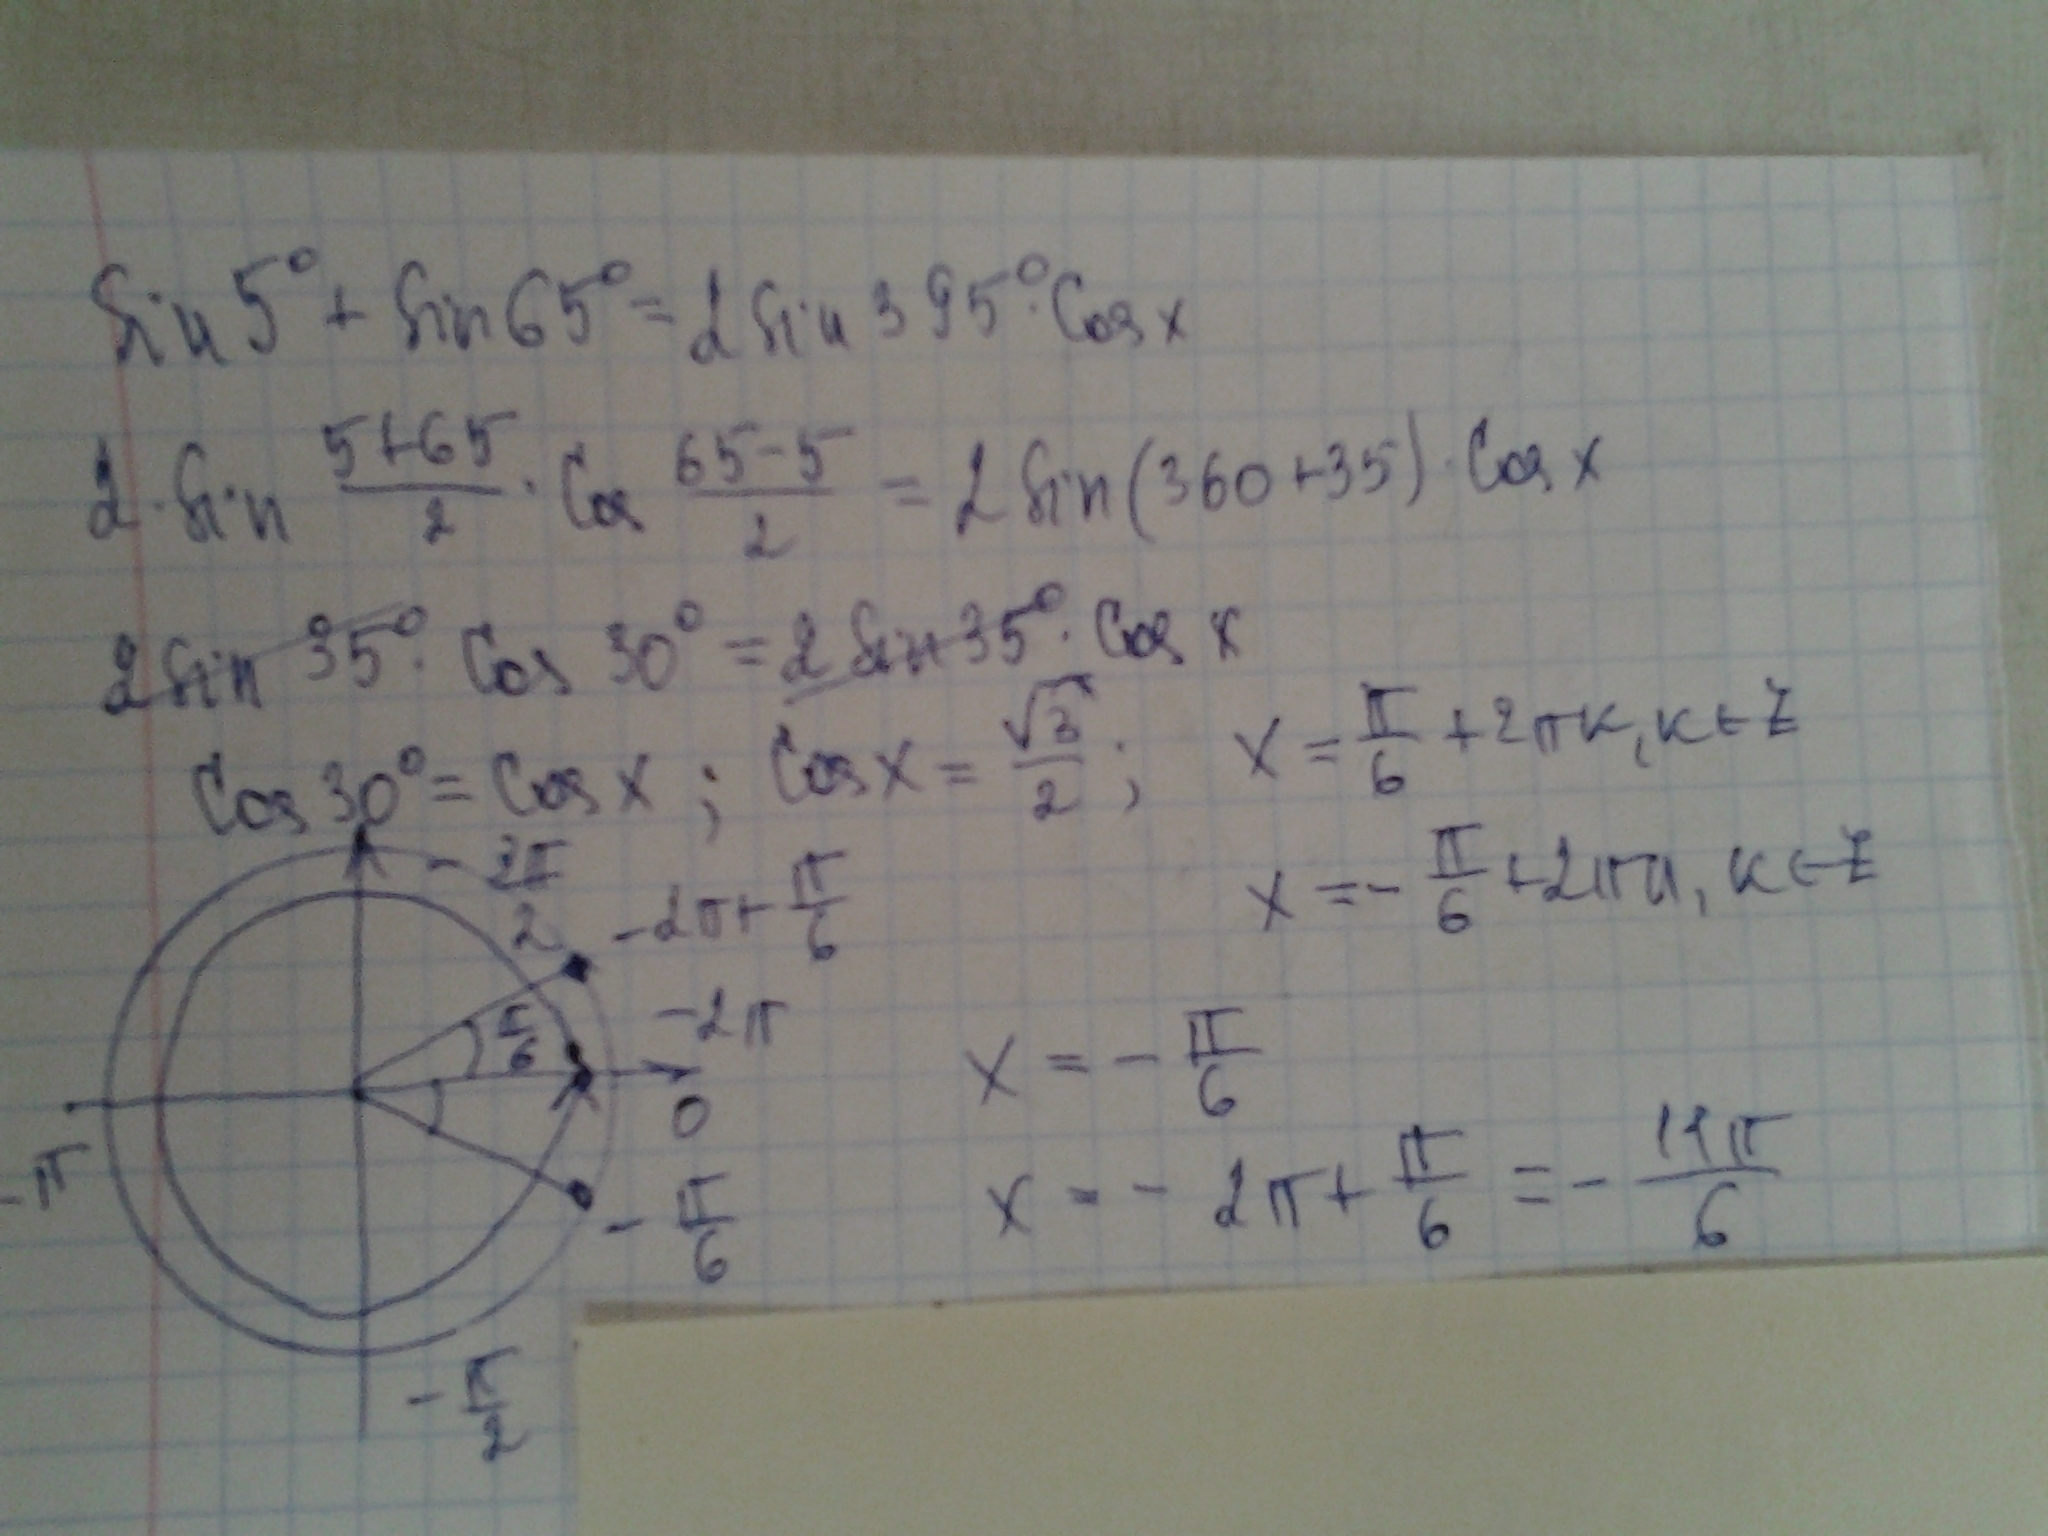 sin 5° + sin 65° = 2 sin 395° · cos x
2 · sin (5+65)/2 · cos (65-5)/2 = 2 sin (360+35) · cos x
2 sin 35° · cos 30° = 2 sin 35° · cos x
cos 30° = cos x ; cos x = √3/2 ; x = π/6 + 2πк, к ∈ Z
x = - π/6 + 2πк, к ∈ Z
- 3π/2
-2π + π/6
π/6
-2π
0
-π
- π/6
- π/2
x = - π/6
x = - 2π + π/6 = - 11π/6